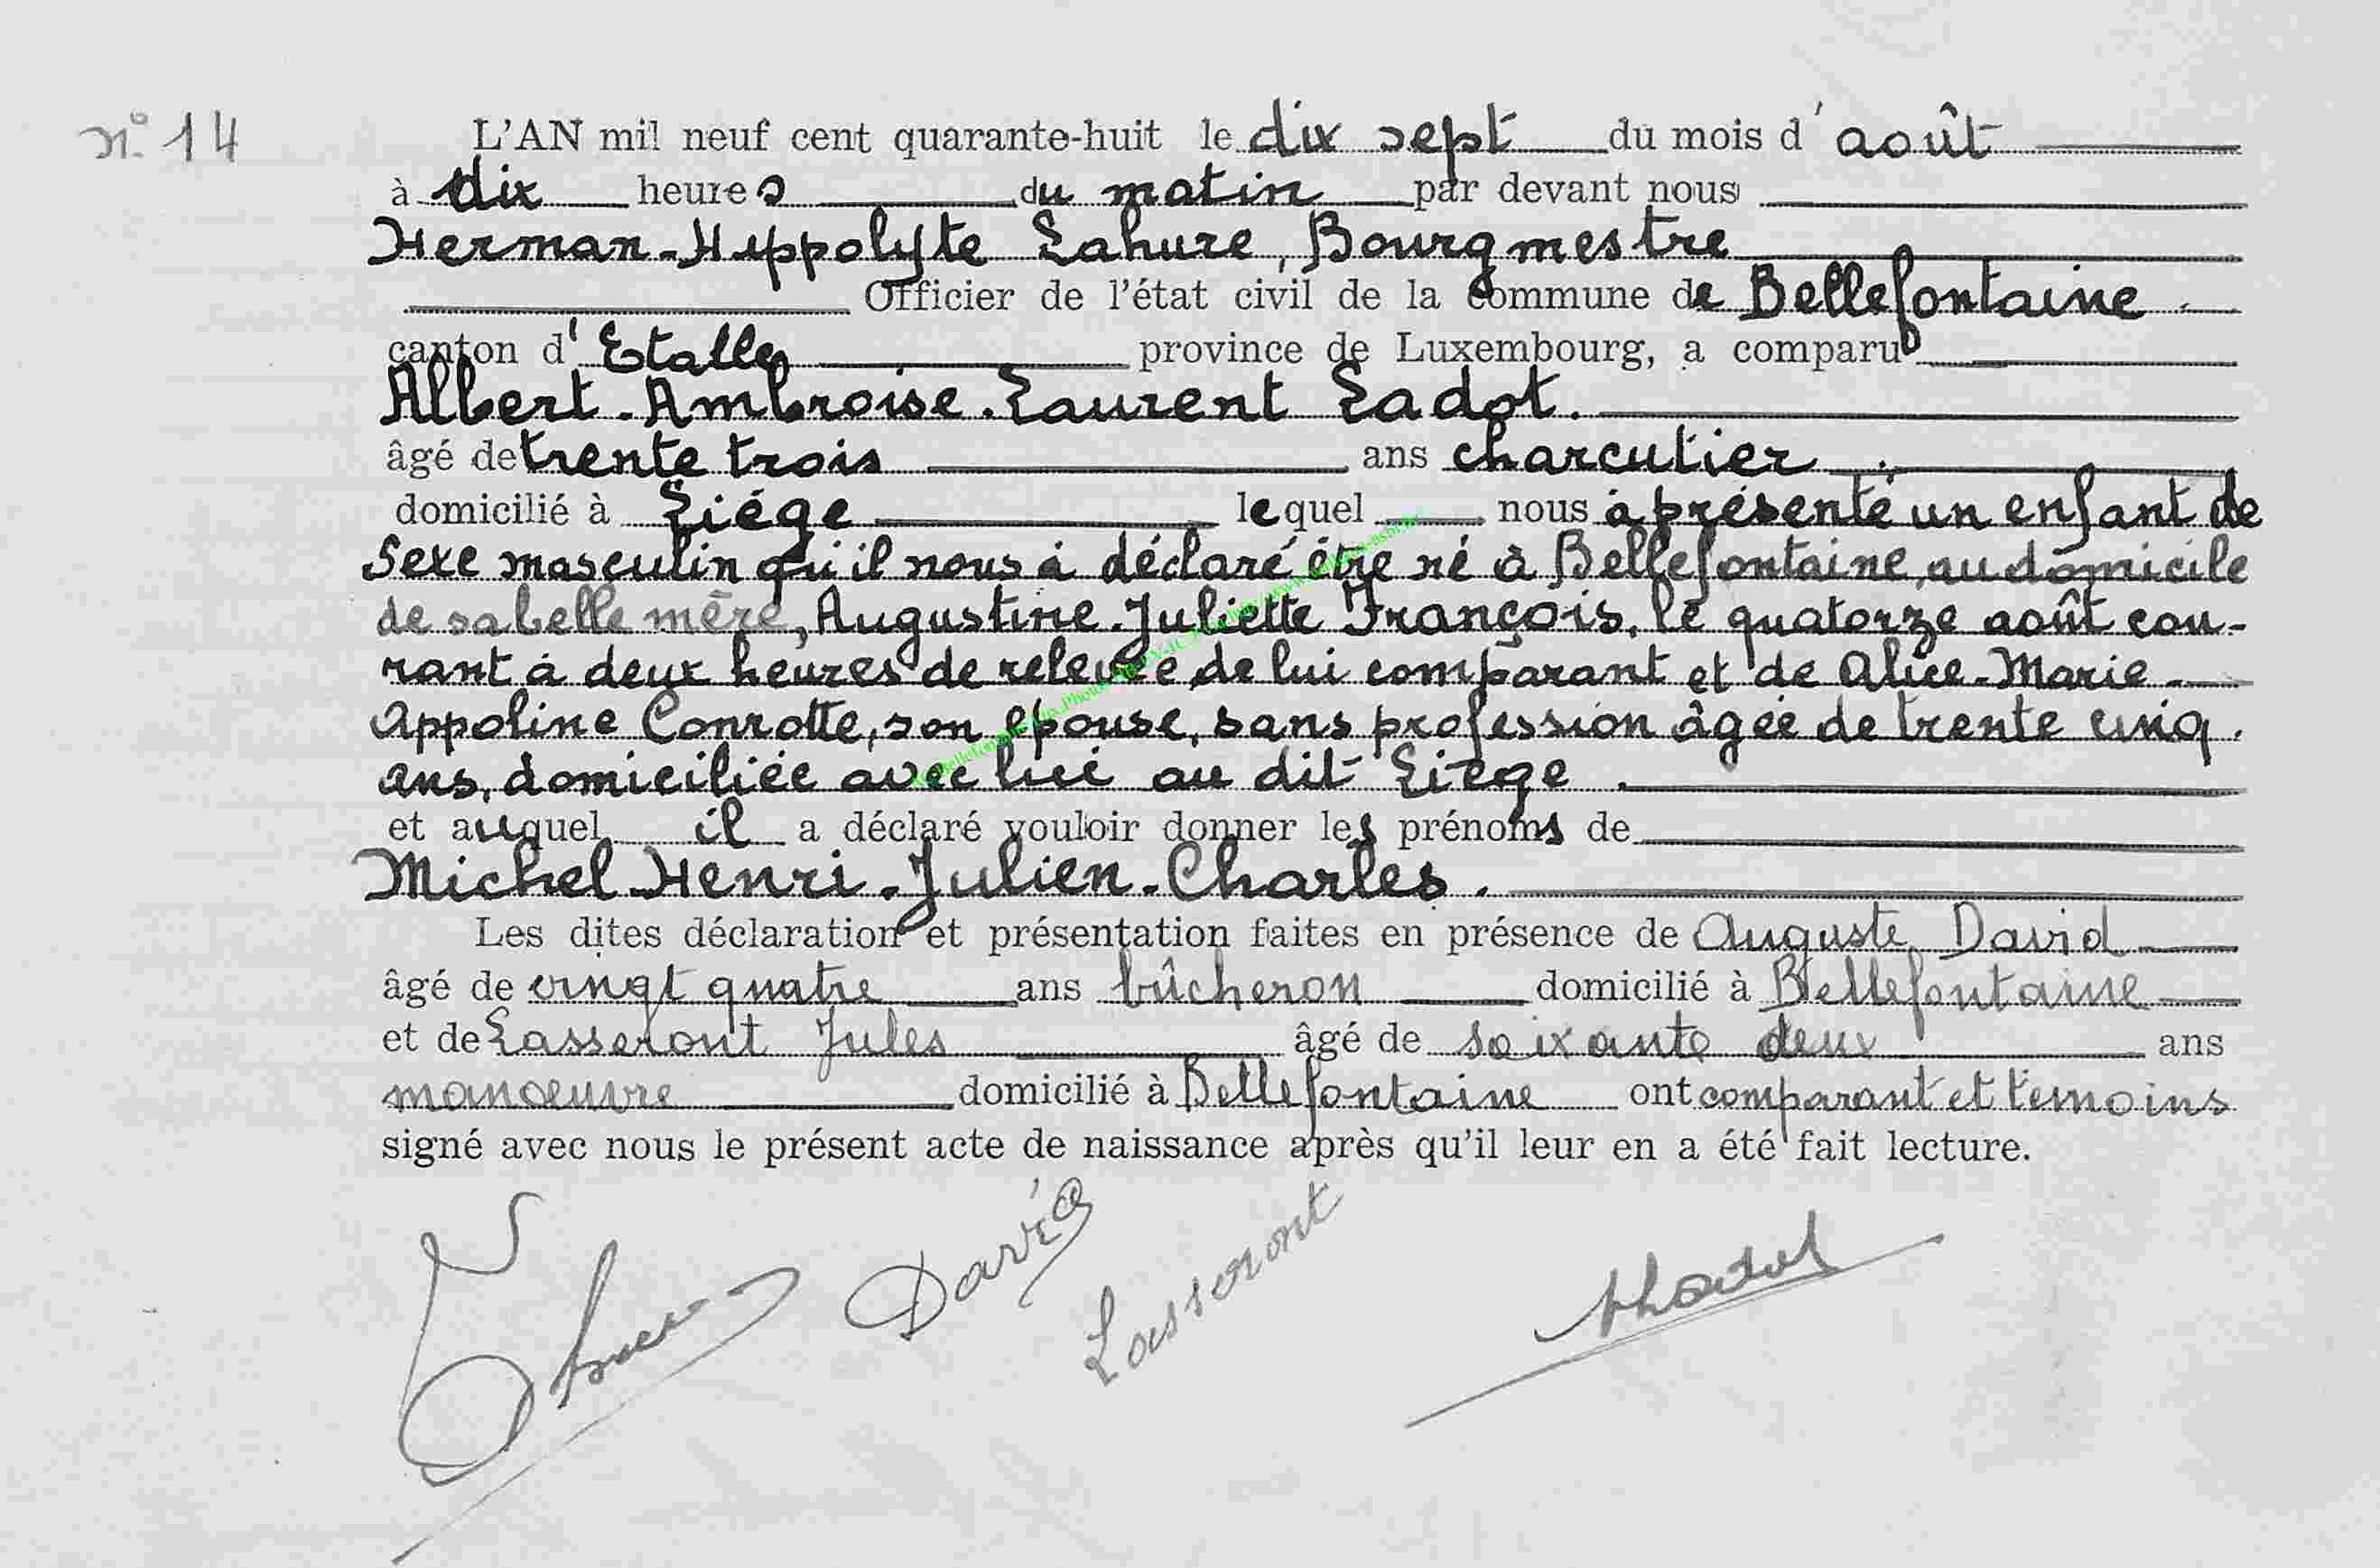 n° 14
L'AN mil neuf cent quarante-huit le dix sept du mois d'août
à dix heures du matin par devant nous
Herman-Hippolyte Lahure, Bourgmestre
Officier de l'état civil de la commune de Bellefontaine.
canton d'Etalle province de Luxembourg, a comparu
Albert-Ambroise-Laurent Ladot.
âgé de trente trois ans charcutier.
domicilié à Liége lequel nous à présenté un enfant de
Sexe masculin qu'il nous à déclaré être né à Bellefontaine, au domicile
de sa belle mère, Augustine-Juliette François, le quatorze août cou-
rant à deux heures de relevée, de lui comparant et de Alice-Marie-
Appoline Conrotte, son épouse, sans profession âgée de trente cinq.
ans, domiciliée avec lui au dit Liège.
et auquel il a déclaré vouloir donner les prénoms de
Michel-Henri-Julien-Charles.
Les dites déclaration et présentation faites en présence de Auguste David
âgé de vingt quatre ans bûcheron domicilié à Bellefontaine
et de Lasseront Jules âgé de soixante deux ans
manœuvre domicilié à Bellefontaine ont comparant et témoins
signé avec nous le présent acte de naissance après qu'il leur en a été fait lecture.
David
Lasseront